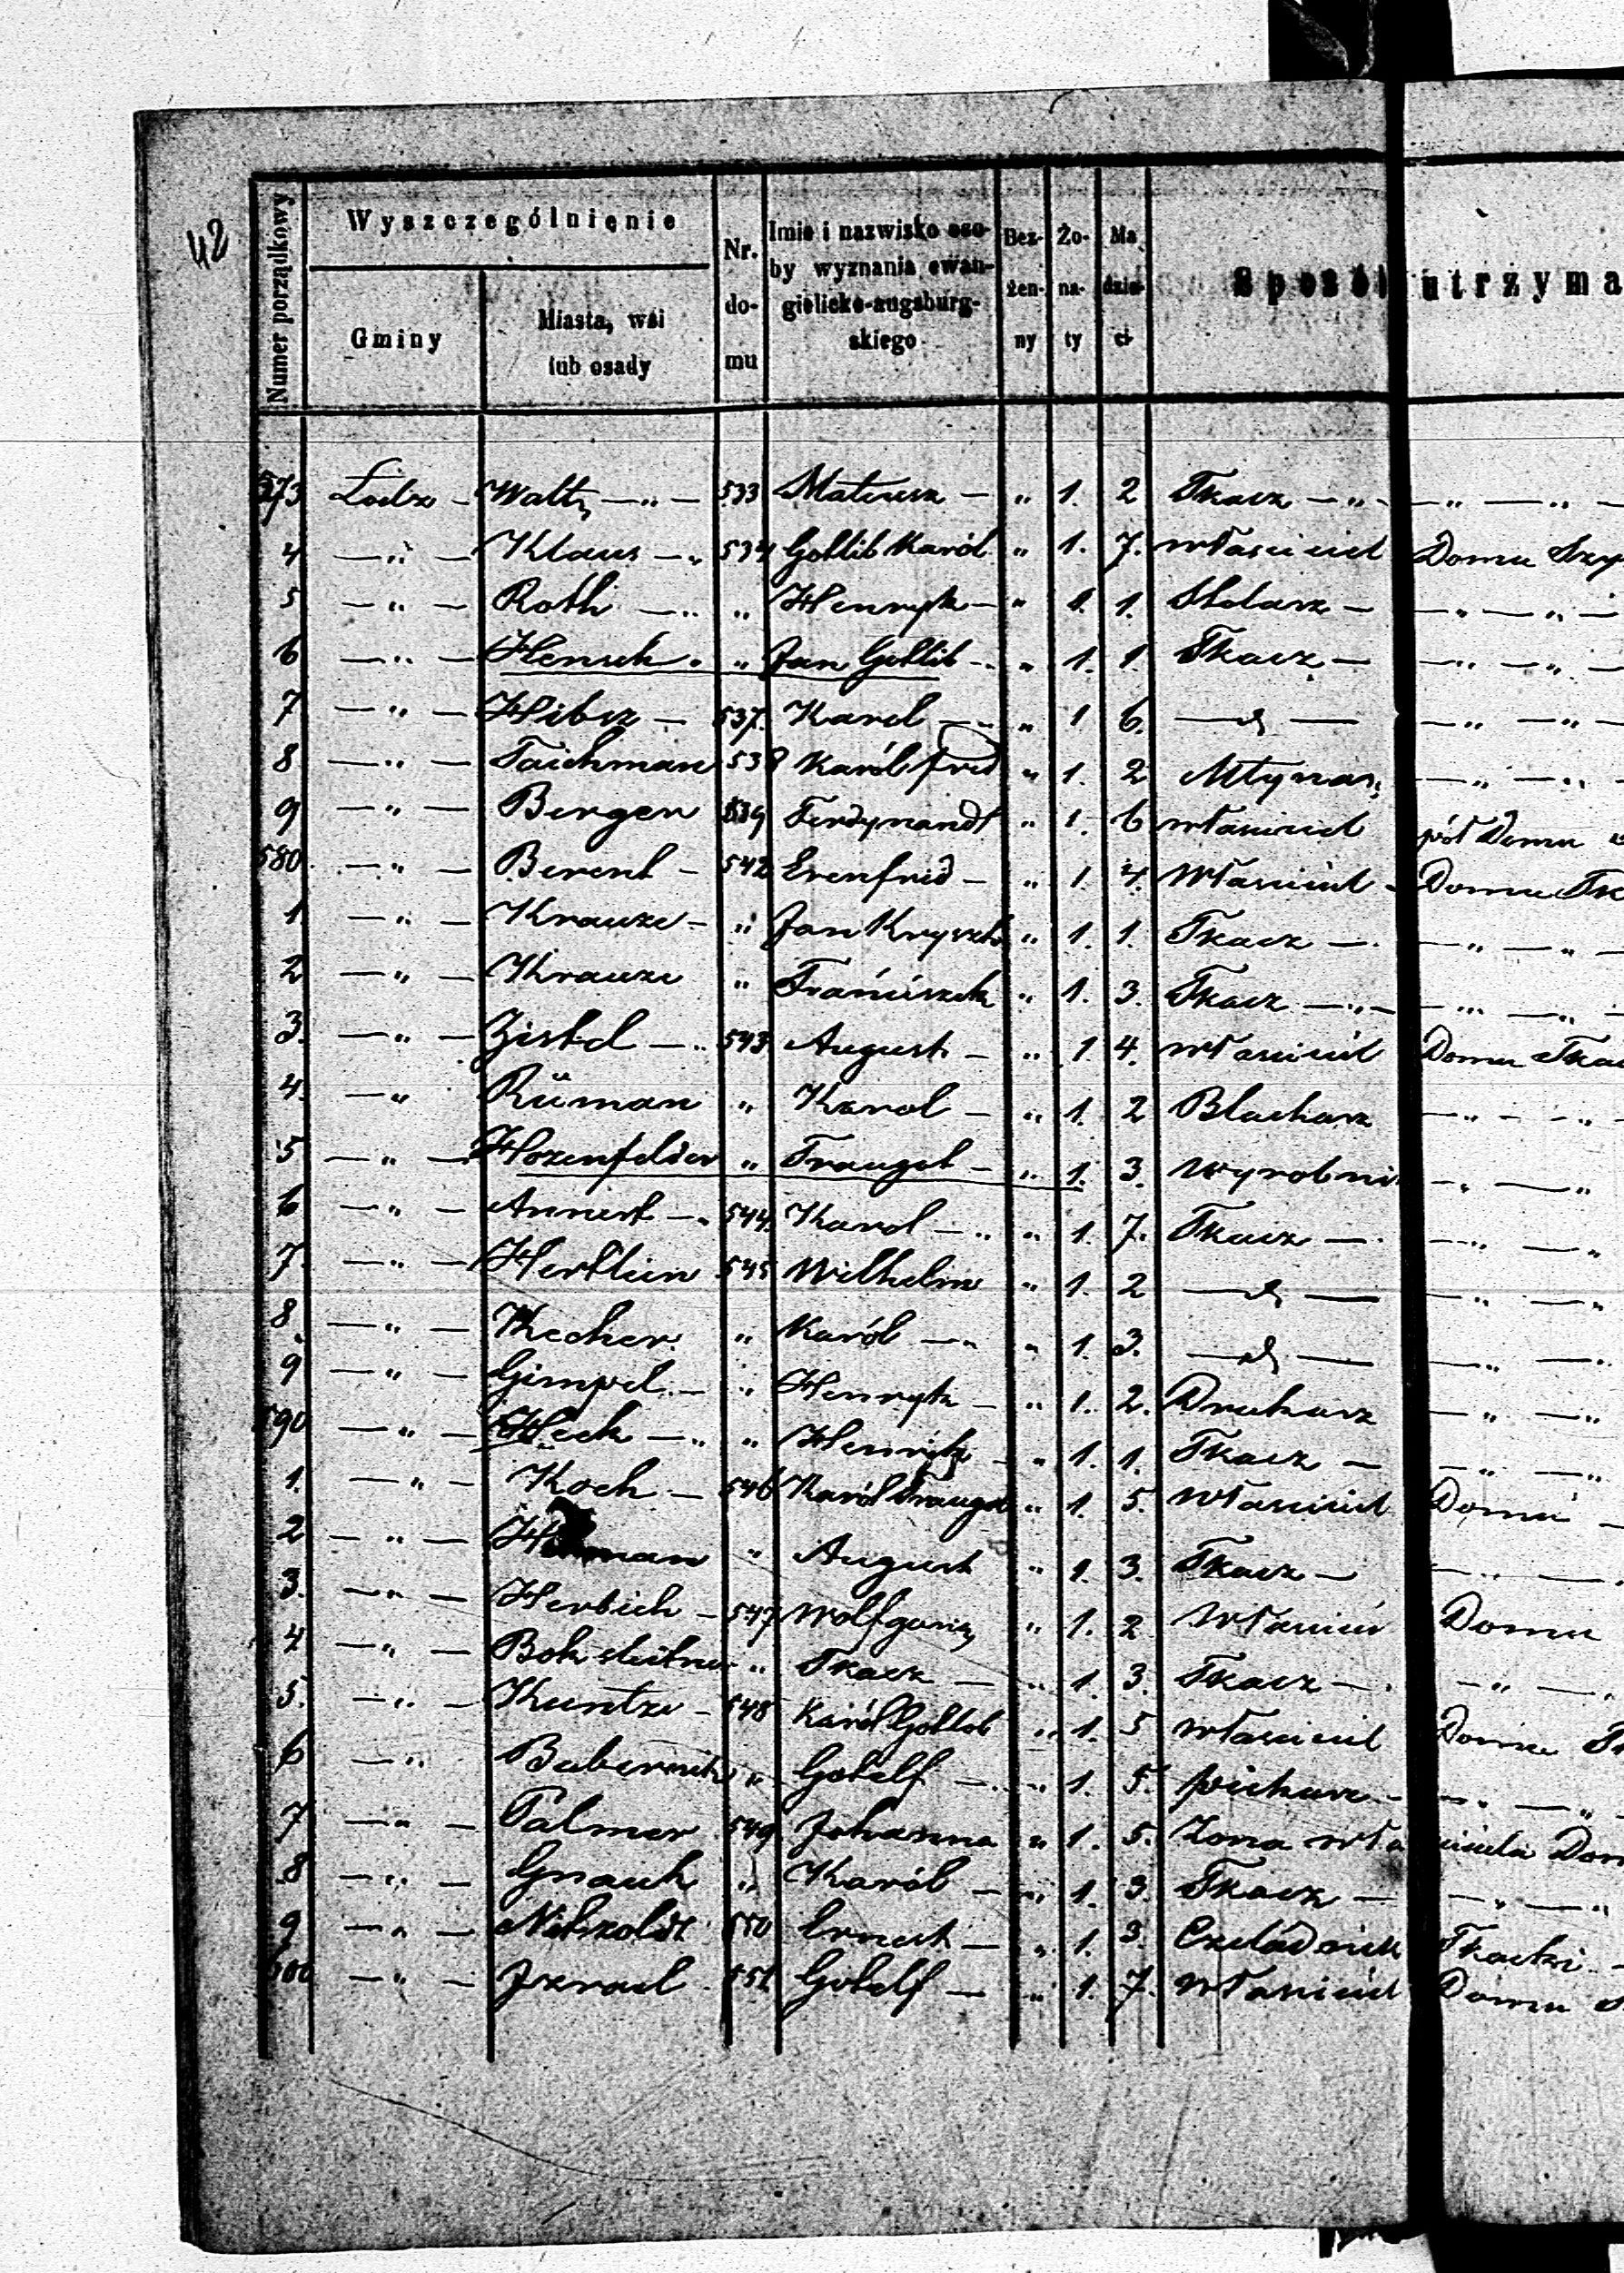 42
Numer porządkowy
Wyszczególnienie
Gminy
Miasta, wsi lub osady
Nr. do- mu
Imie i nazwisko oso- by wyznania ewan- gielicko-augsburg- skiego
Bez- żen- ny
Żo- na- ty
Ma dzie- ci
Sposób utrzyma
573 Lodz - Waltz — " — 533 Mateusz — " 1. 2 Tkacz — " — — " — " —
4 — " — Klaus — " 534 Gottlib Karól " 1. 7. właściciel Domu Szy
5 — " — Roth — " " Henryk — " 1. 1. Stolarz — — " — " —
6 — " — Hensch " " Jan Gottlib — " 1. 1. Tkacz — — " — " —
7 — " — Hibsz — 537. Karol — " 1 6. — d — — " — " —
8 — " — Taichman 538 Karól frid " 1. 2 Młynarz — " — "
9 — " — Berger 539 Ferdynandt " 1. 6 właściciel pół Domu
580. — " — Berent — 542 Erenfrid — " 1. 4. Właściciel — Domu Tk
1 — " — Krauze — " Jan Kryszto " 1. 1. Tkacz — — " — " —
2 — " — Krauze " Franciszek " 1. 3. Tkacz — " — — " — "
3. — " — Zistel — " 543 August — " 1 4. właściciel Domu Tka
4. — " Rüman " Karol — " 1. 2 Blacharz — " — "
5 — " — Hozenfelder " Traugot — " 1. 3. wyrobni — " — "
6 — " — Annert — " 544. Karol — " " 1. 7. Tkacz — — " — "
7. — " — Hertlein 545 Wilhelm " 1. 2 — d — — " — "
8 — " — Kecher. " Karól — " " 1. 3. — d — — " — "
9 — " — Gimpel — " Henryk — " 1. 2. Drukarz — " — "
590 — " — Heck — " " Henrik — " 1. 1. Tkacz — — " — "
1. — " — Koch — 546 Karól Traugot " 1. 5. Właściciel Domu —
2 — " — " August " 1. 3. Tkacz — — " —
3. — " — Herbich — 547 Wolfgang " 1. 2 Właściciel Domu
4 — " — " Tkacz — " 1. 3. Tkacz — — " — "
5. — " — Kuntze — 548 Karól Gottlob " 1. 5 właściciel Domu
6 — " " Gotelf — " 1. 5. piekarz — — " — "
7 — " — Palmer 549 Johanna " 1. 5. Zona właściciela Dom
8 — " — Gnauk " Karól — " 1. 3 Tkacz — — " — "
9 — " — 550 Ernest — " 1. 3. Czeladnik Tkacki —
600 — " — Jzrael 551 Gotelf — " 1. 7. właściciel Domu